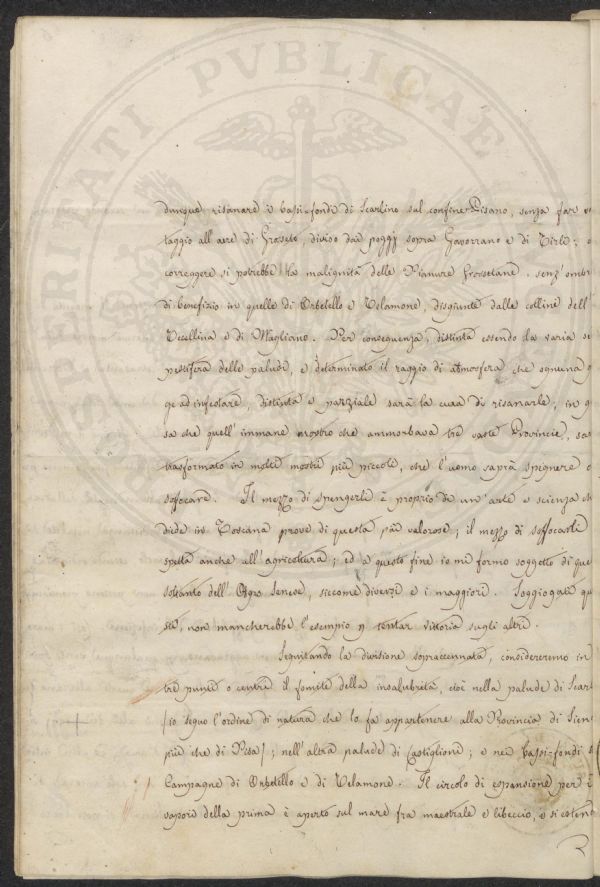 dunque risanare i bassi-fondi di Scarlino sul confine Pisano, senza far
taggio all'aere di Grosseto, diviso dai poggj sopra Gavorrano e di Tirli;
correggere si potrebbe la malignità delle Pianure Grossetane, senz'ombr
di benefizio in quelle di Orbetello e Telamone, disgiunte dalle colline dell'
Uccellina e di Magliano. Per conseguenza, distinta essendo la varia se
pestifera delle paludi, e determinato il raggio di atmosfera che ognuna
ge ad infestare, distinta e parziale sarà la cura di risanarle, in g
sa che quell'immane mostro che ammorbava tre vaste Provincie, sa
trasformato in molti mostri più piccoli, che l'uomo saprà spignere o
soffocare. Il mezzo di spengerli è proprio di un'arte e scienza ch
diede in Toscana prove di questa più valorose; il mezzo di soffocarli
spetta anche all'agricoltura; ed a questo fine io mi formo soggetto di que
soltanto dell'Agro Senese, siccome diversi e i maggiori. Soggiogati qu
sti, non mancherebbe l'esempio p tentar vittoria sugli altri.
Seguitando la divisione sopraccennata, considereremo in
tre punti o centri il fomite della insalubrità, cioè nella palude di Scarl
(io seguo l'ordine di natura che lo fa appartenere alla Provincia di Sien
più che di Pisa); nell'altra palude di Castiglione; e nei bassi-fondi
Campagne di Orbetello e di Telamone. Il circolo di espansione per i
vapori della prima è aperto sul mare fra maestrale e libeccio, e si esten
PROSPERITATI PVBLICAE